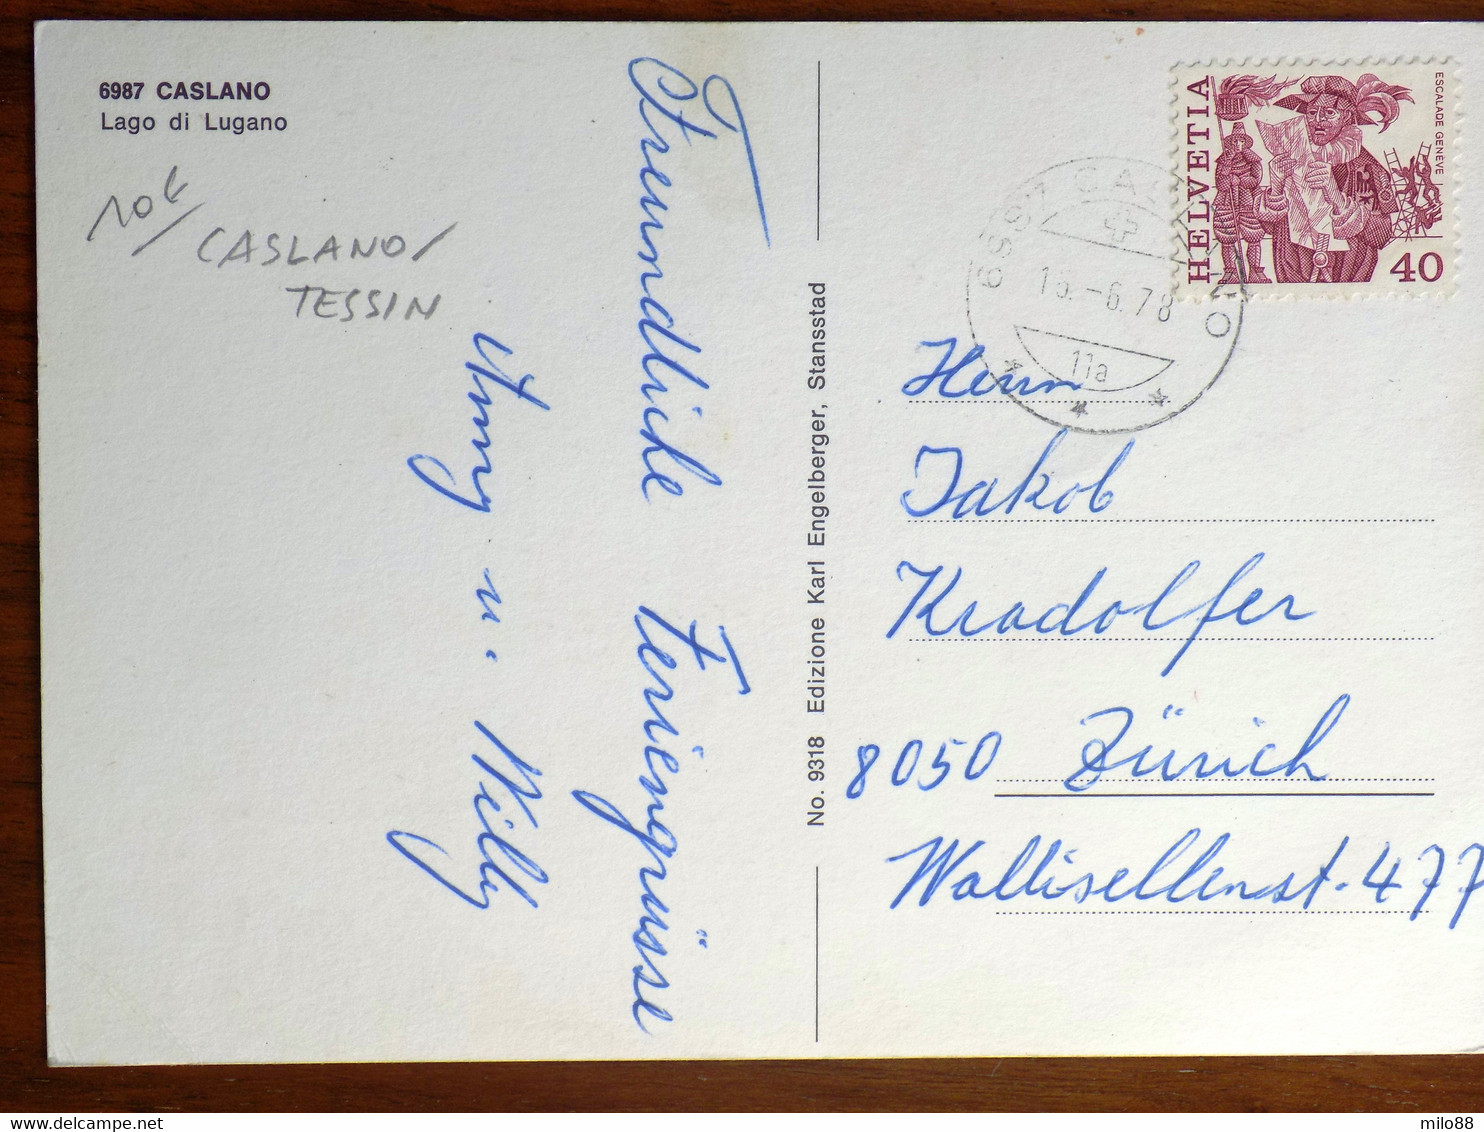 6987 CASLANO
Lago di Lugano
CASLANO/
TESSIN
Freundliche Feriengrüsse
u. Willy
No. 9318 Edizione Karl Engelberger, Stansstad
HELVETIA
ESCALADE GENEVE
40
6987 CASLANO
15.-6.78
11a
Herrn
Jakob
Kradolfer
8050 Zürich
Wallisellenst. 477
milo88